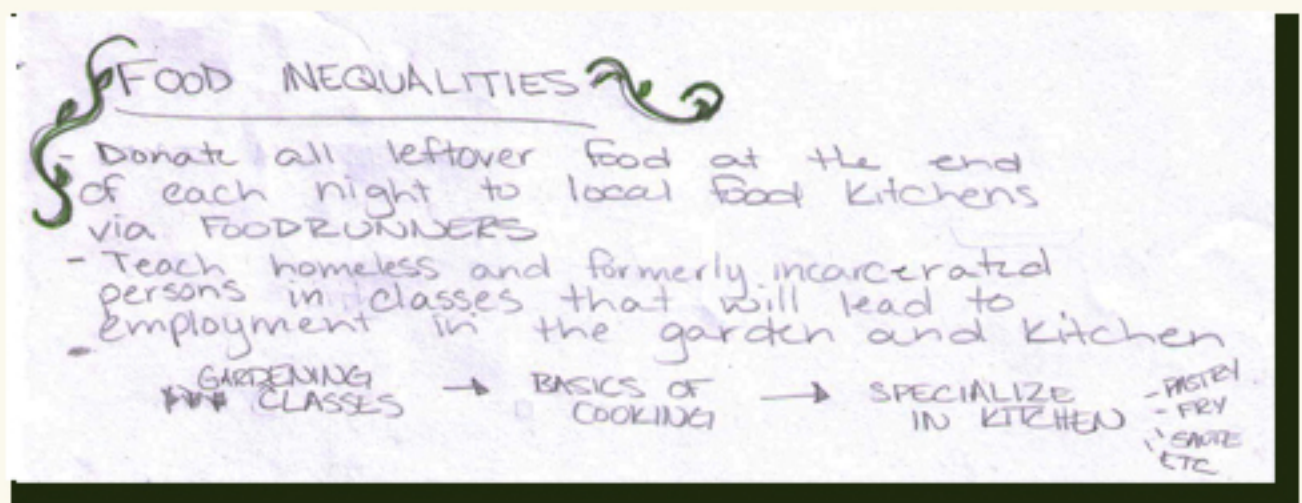 FOOD INEQUALITIES
- Donate all leftover food at the end
of each night to local food kitchens
via FOODRUNNERS
- Teach homeless and formerly incarcerated
persons in classes that will lead to
employment in the garden and kitchen
-
GARDENING CLASSES → BASICS OF COOKING → SPECIALIZE IN KITCHEN
- PASTRY
- FRY
- SAUTE
ETC